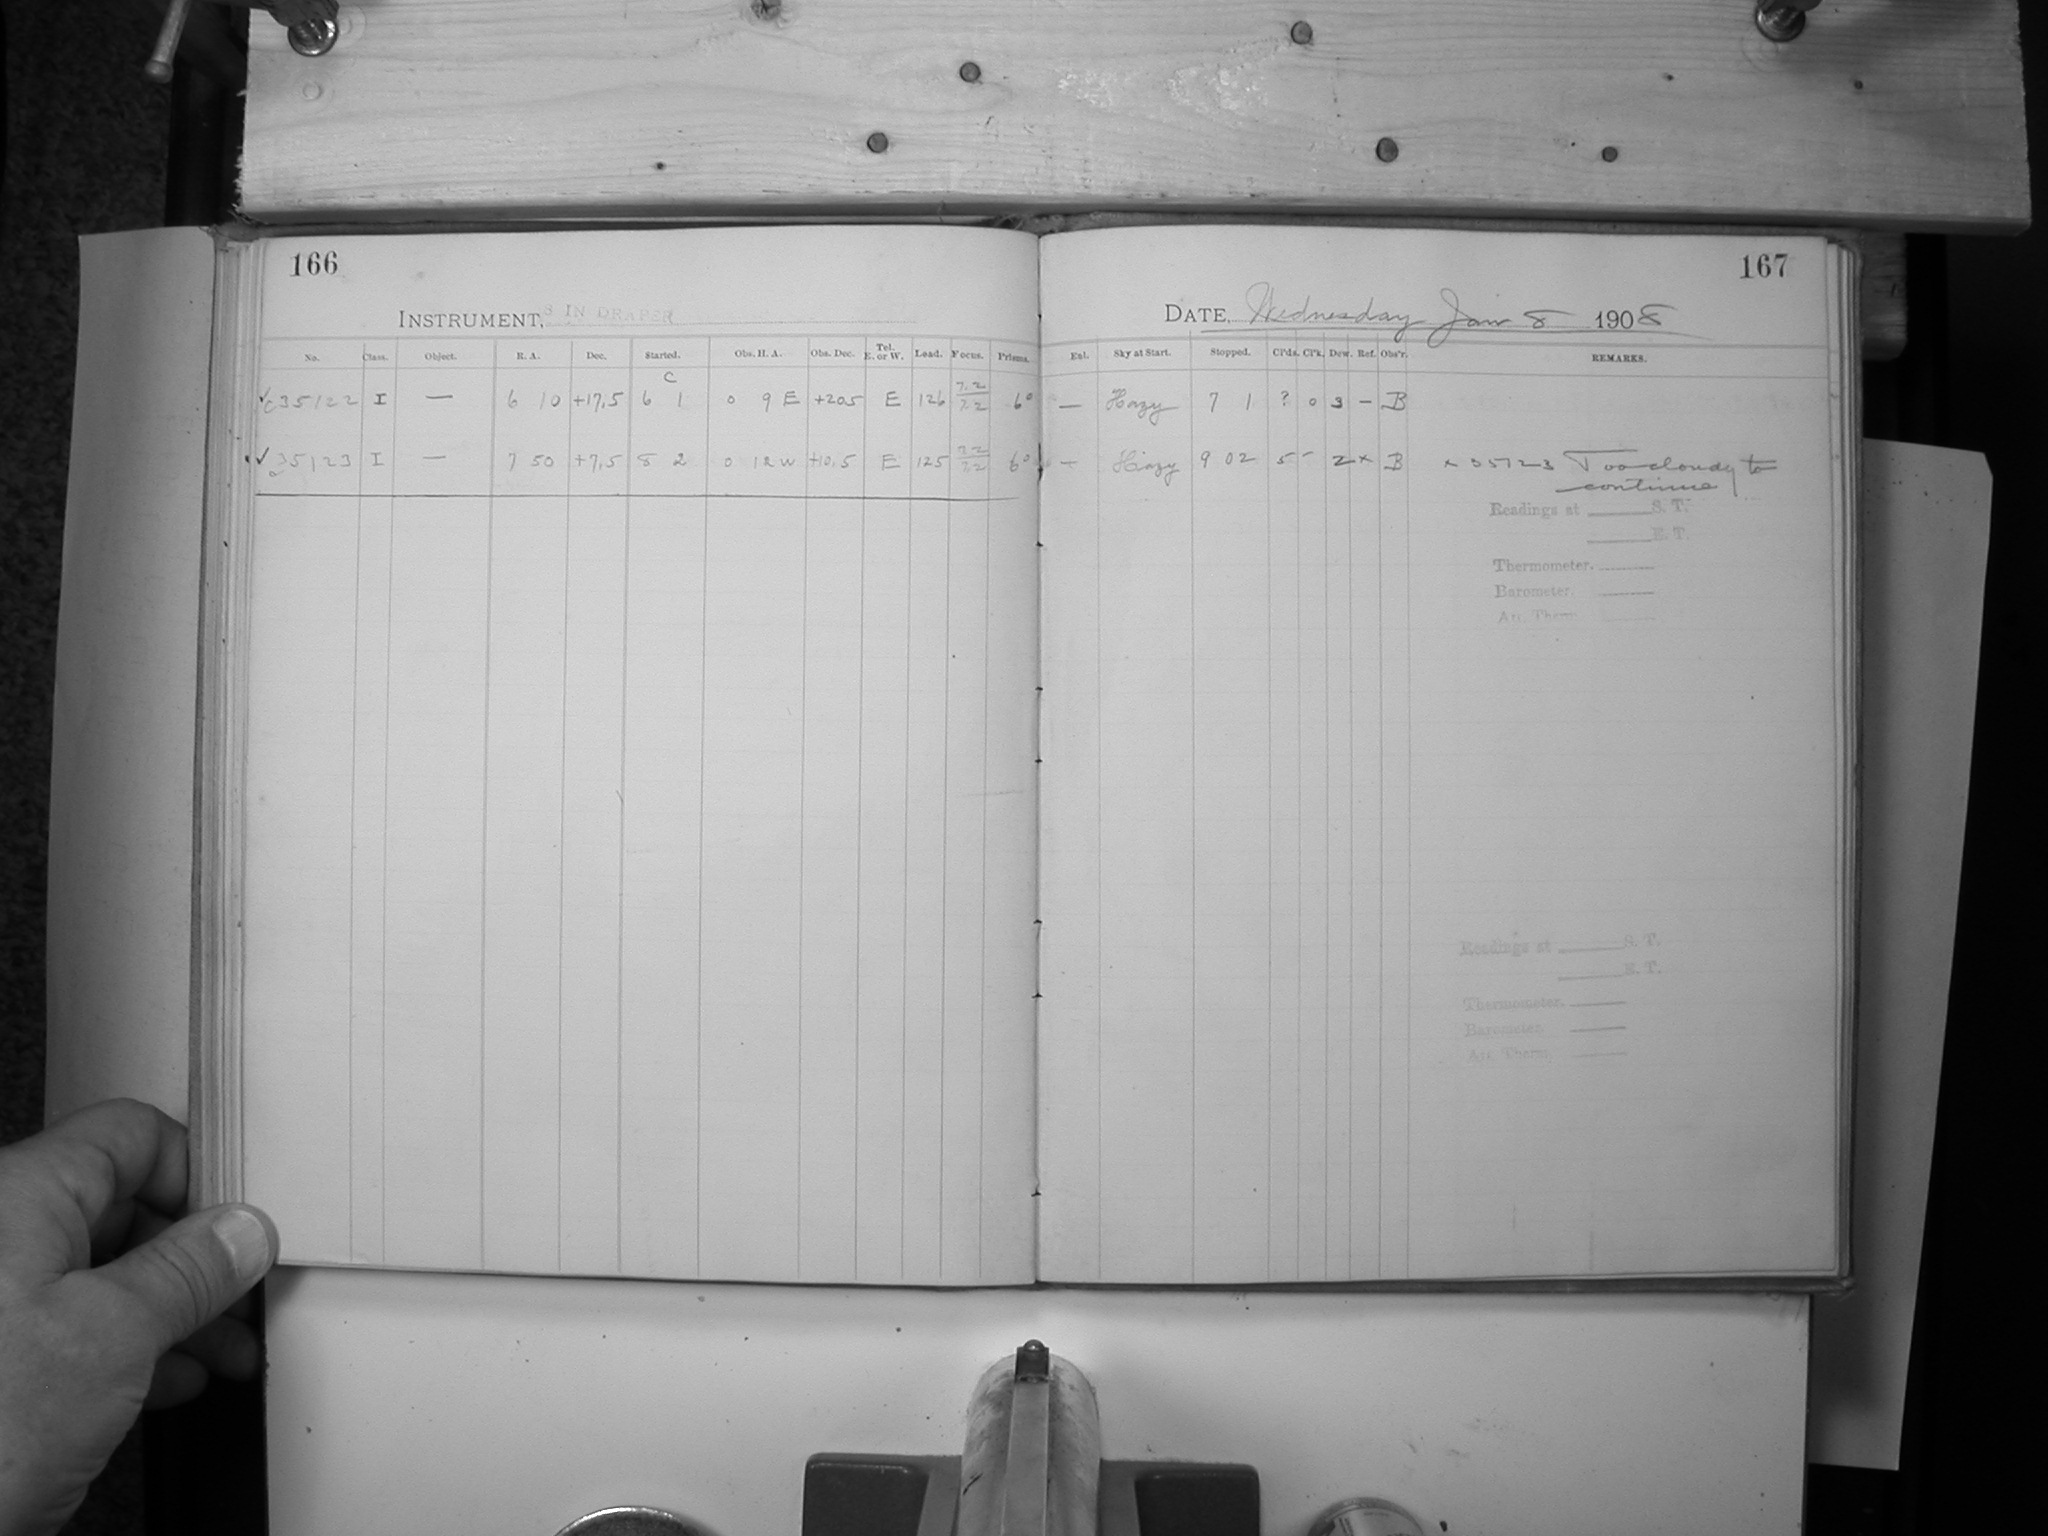 166
INSTRUMENT, 8 IN DRAPER
No. Class. Object. R. A. Dec. Started. Obs. H. A. Obs. Dec. Tel. E. or W. Lead. Focus. Prisms.
C
✓ c35122 I — 6 10 +17.5 6 1 0 9 E +20.5 E 126 7.2 7.2 6°
✓ 35123 I — 7 50 +7.5 8 2 0 12 W +10.5 E 125 7.2 7.2 6°
167
DATE, Wednesday Jan 8 1908
Enl. Sky at Start. Stopped. Cl'ds. Cl'k. Dew. Ref. Obs'r. REMARKS.
— Hazy 7 1 ? 0 3 — B
— Hazy 9 02 5 - 2 x B x 35123 Too cloudy to
continue
Readings at S. T.
E. T.
Thermometer.
Barometer.
Att. Therm.
Readings at S. T.
E. T.
Thermometer.
Barometer.
Att. Therm.